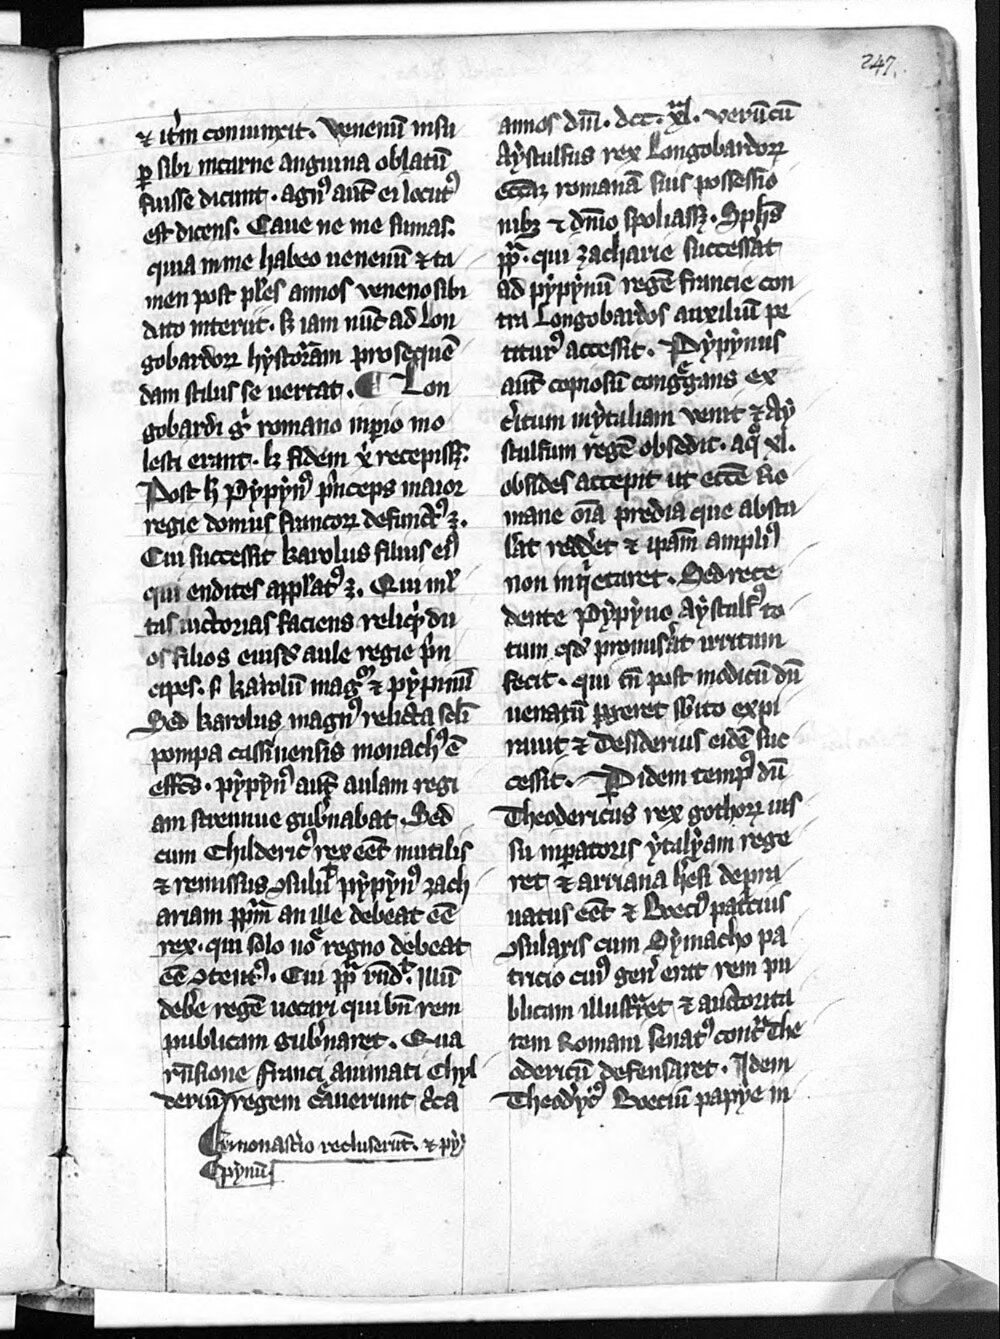 247.
⁊ itm̄ coniunxit. Venenū insu
ꝑ sibi incarne anguina oblatū
fuisse dicunt. agnꝰ aūt ei locutꝰ
est dicens. Caue ne me sumas.
quia in me habeo uenenū ⁊ ta
men post pl̓es annos veneno sibi
dato interiit. sꝫ iam nūc ad lon
gobardoꝝ hẏstoriam prosequē
dam stilus se uertat. ¶ Lon
gobardi gͥ romano inꝑio mo
lesti erant. lꝫ fidem xͥ recepissꝫ.
Post h̓ Pẏpẏnꝰ pͥnceps maior
regie domus francoꝝ defunctꝰ ē.
Cui successit karolus filius eiꝰ
qui endites appl̓atꝰ ē. Qui ml̓
tas uictorias faciens reliqͥt du
os filios eiusd̓ aule regie pͥn
cipes. s̓ karolū magͫ ⁊ pẏpinū
Sed karolus magnꝰ relicta sc̄li
pompa cassinensis monachꝰ ē
effc̄s. pẏpẏnꝰ aūt aulam regi
am strennue gub̓nabat. Sed
cum Childericꝰ rex eēt inutilis
⁊ remissus ꝯsuluͭ pẏpẏnꝰ zach
ariam pp̄m an ille debeat eē
rex. qui solo noīe regno debeat
eē ꝯtentꝰ. Cui pp̄ rn̄d̓. Illū
debe̓ regē uocari qui bn̄ rem
publicam gub̓naret. Qua
rn̄sione franci animati Chyl
dericū regem
in monast̓io recluserūt. ⁊ pẏ
pẏnū
annos dn̄i. dcc. xl. verū cū
Aẏstulfus rex longobardoꝝ
ecc̄az romanā suis possessio
nibꝫ ⁊ dn̄io spoliassꝫ. Sphs̄
pp̄. qui zacharie successat
ad pẏpẏnū regē francie con
tra Longobardos auxiliū pe
titurꝰ accessit. Pẏpẏnus
aūt copiosū congͤgans ex
c̓itum in ẏtaliam venit ⁊ aẏ
stulfum regē obsedit. a qͦ xl.
obsides accepit ut ecc̄e Ro
mane oīa predia que abstu
lat redd̓et ⁊ ipsam ampliꝰ
non inqͥetaret. Sed rece
dente Pẏpẏno Aẏstulfꝰ to
tum qd̓ promis̓at irritum
fecit. qui tn̄ post modicū dū
uenatū ꝑgeret sb̓ito expi
rauit ⁊ Desiderius eidē suc
cessit. Ꝑ idem tempꝰ dū
Theodericus rex gothoꝝ ius
su inꝑatoris ẏtalẏam rege
ret ⁊ arriana h̓esi depra
uatus eēt ⁊ Boeciꝰ patͥcius
ꝯsularis cum Sẏmacho pa
tricio cuiꝰ gen̓ erat rem pu
blicam illustrͣet ⁊ auctorita
tem Romani senatꝰ contͣ the
odericū defensaret. Idem
Theodẏcꝰ Boeciū papẏe in